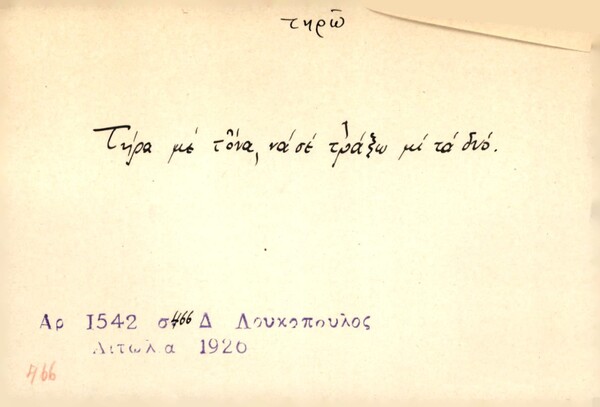 τηρῶ
Τήρα μέ τὄνα, νά σέ τράξω μί τά δυό.
Αρ 1542 σ 466 Δ Λουκοπουλος
Αιτωλια 1920
466